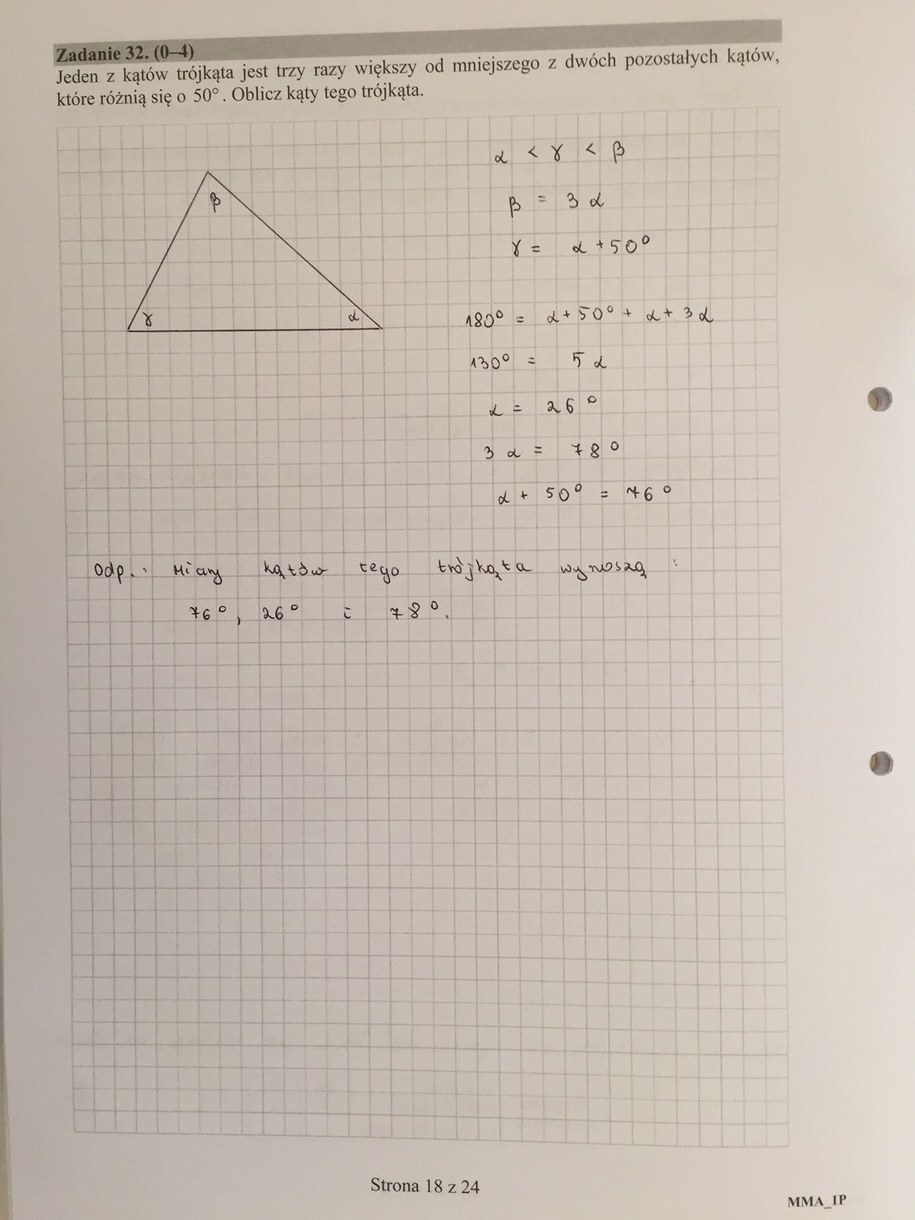 Zadanie 32. (0–4)
Jeden z kątów trójkąta jest trzy razy większy od mniejszego z dwóch pozostałych kątów,
które różnią się o 50°. Oblicz kąty tego trójkąta.
α < γ < β
β = 3 α
γ = α + 50°
β
γ
α
180° = α + 50° + α + 3 α
130° = 5 α
α = 26°
3 α = 78°
α + 50° = 76°
Odp.: Miary kątów tego trójkąta wynoszą:
76°, 26° i 78°.
Strona 18 z 24
MMA_1P